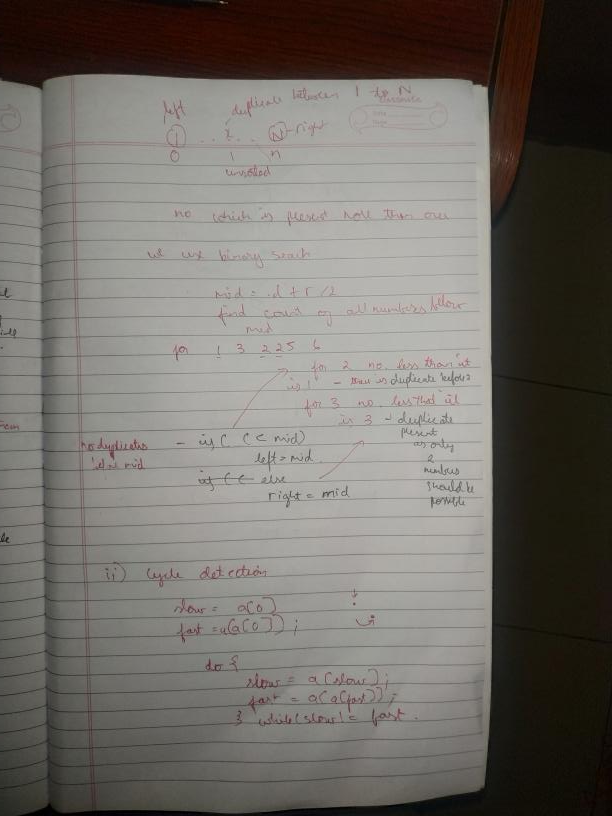 left duplicate between 1 to N
1 . . 2 . . N - right
0 1 n
unsorted
no which is present more than once
we use binary search
mid = l + r / 2
find count of all numbers below
mid
for 1 3 2 2 5 6
for 2 no. less than it
is 1 - duplicate before 2
for 3 no. less that it
is 3 - duplicate
present
as only
2
numbers
should be
possible
no duplicates
before mid
- if ( C < mid)
left = mid
if ( C < else
right = mid
ii) Cycle detection
slow = a(0)
fast = a(a(0));
do {
slow = a(slow);
fast = a(a(fast));
} while(slow != fast.